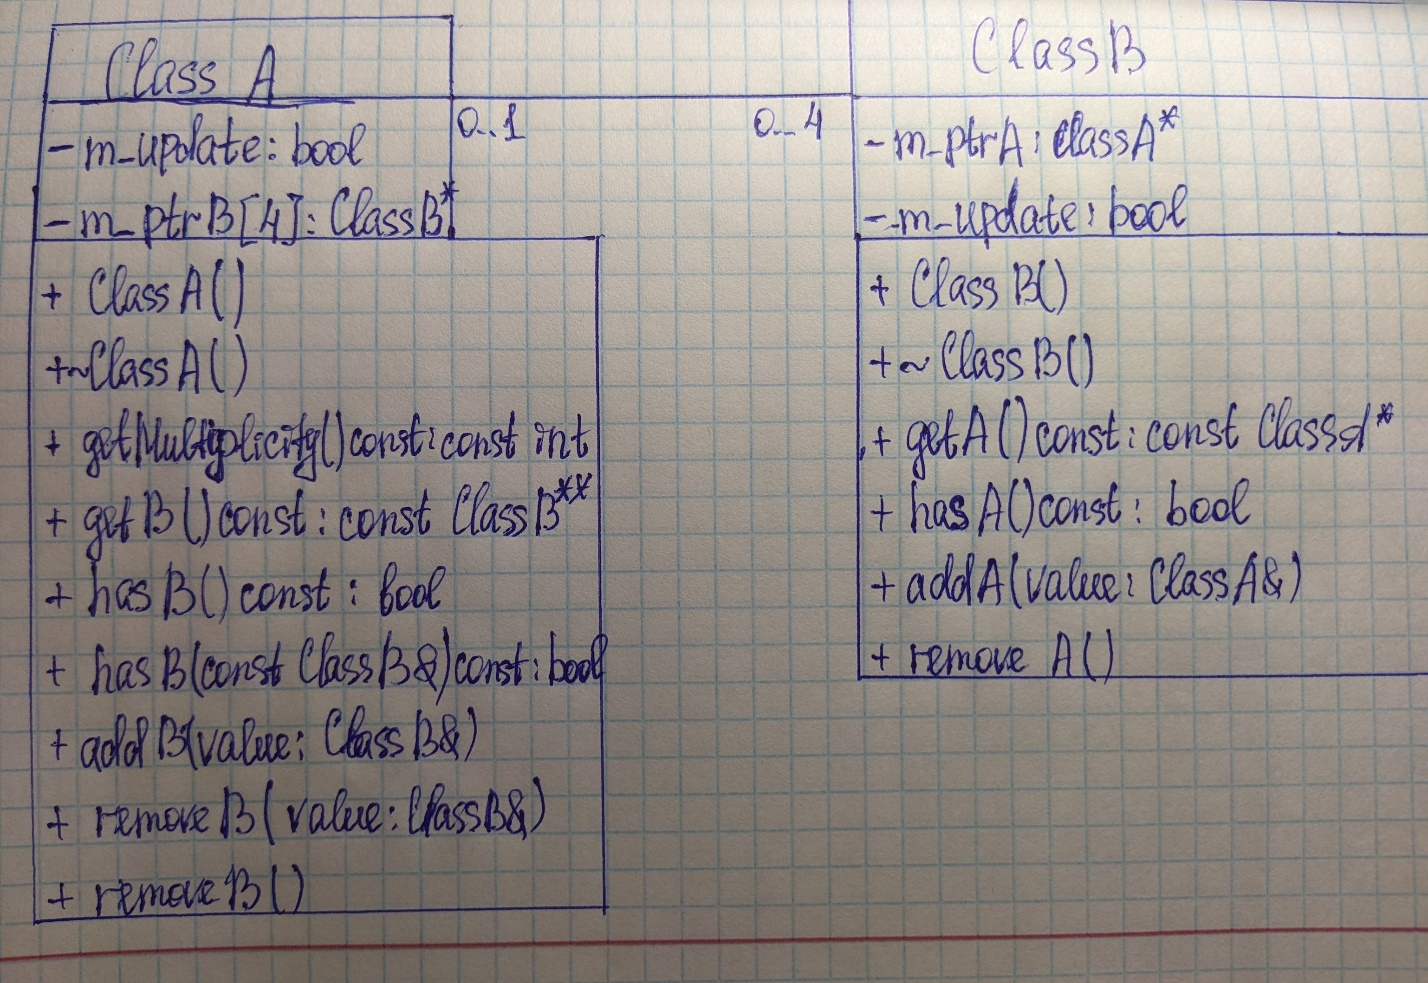 Class A
- m_update: bool
- m_ptrB[4]: ClassB*
+ ClassA()
+~ClassA()
+ getMultiplicity()const: const int
+ getB()const: const ClassB**
+ hasB()const: bool
+ hasB(const ClassB&)const: bool
+ addB(value: ClassB&)
+ removeB(value: ClassB&)
+ removeB()
0..1
0..4
ClassB
- m_ptrA: ClassA*
- m_update: bool
+ ClassB()
+~ClassB()
+ getA()const: const ClassA*
+ hasA()const: bool
+ addA(value: ClassA&)
+ remove A()